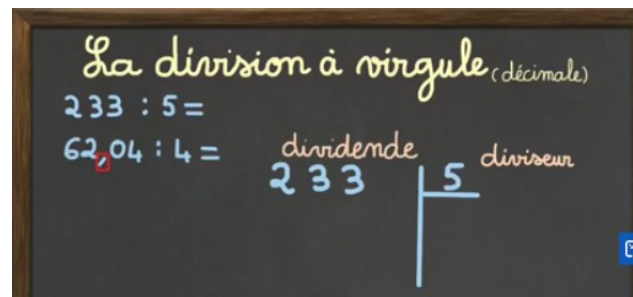 La division à virgule (décimale)
233 : 5 =
62,04 : 4 =
dividende diviseur
233 5